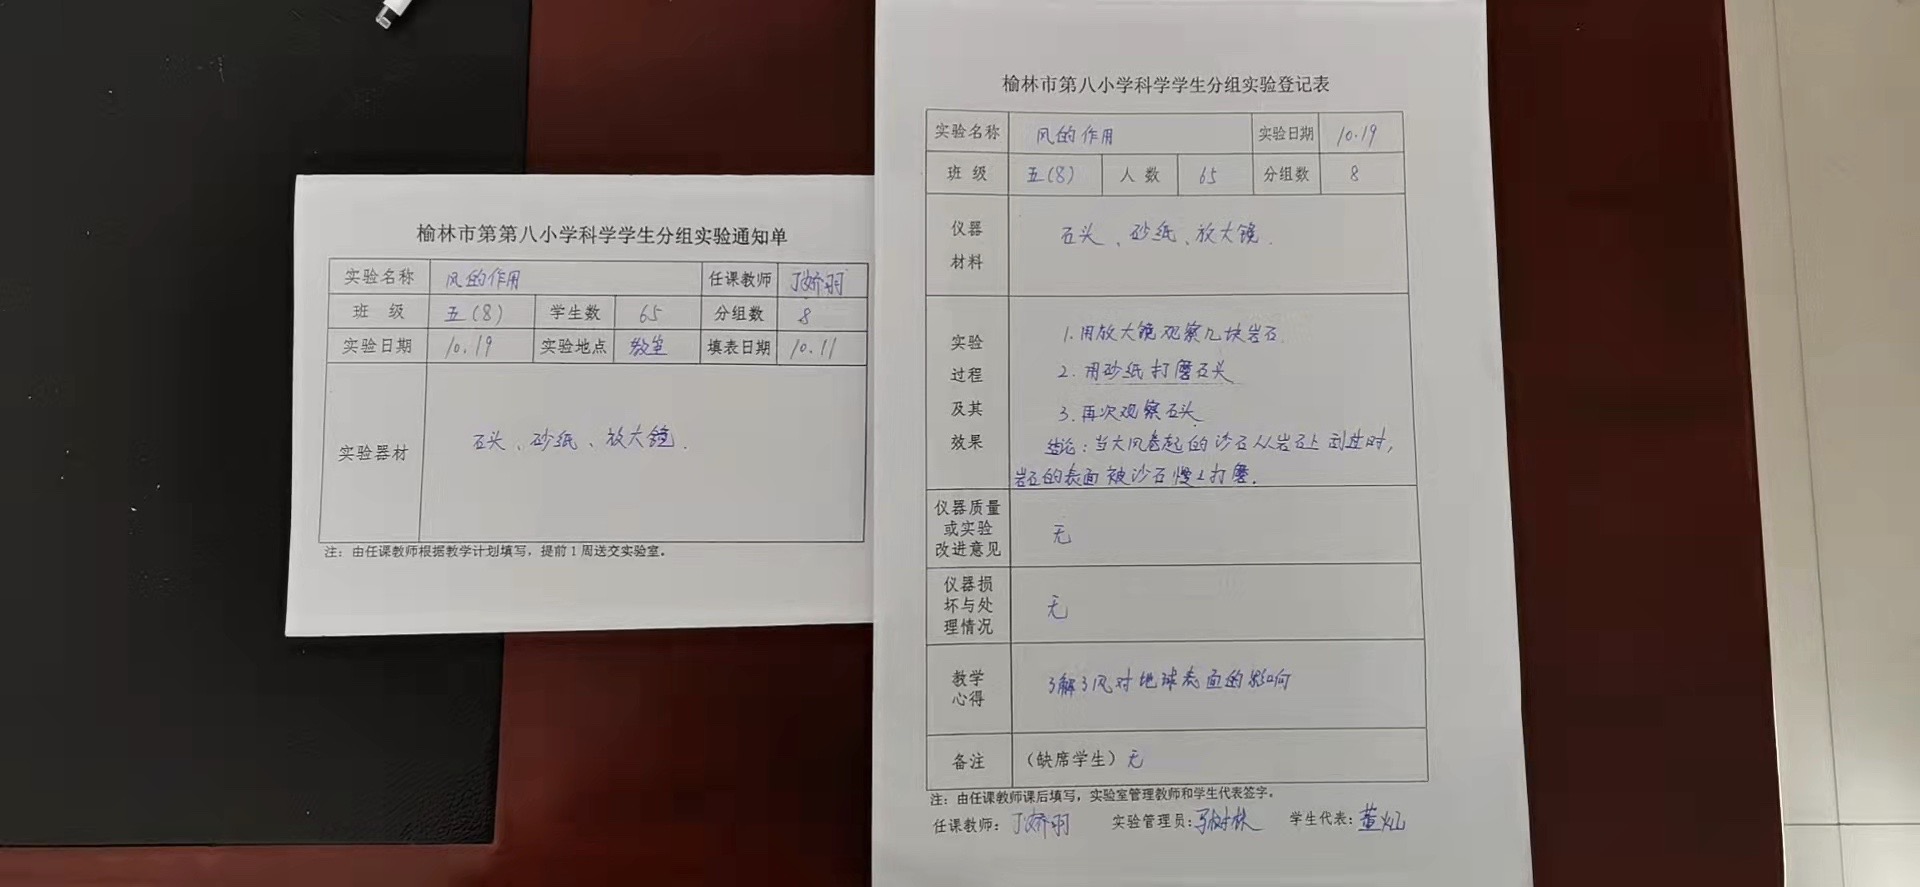 榆林市第第八小学科学学生分组实验通知单
实验名称 风的作用 任课教师 丁娇羽
班 级 五(8) 学生数 65 分组数 8
实验日期 10.19 实验地点 教室 填表日期 10.11
实验器材 石头、砂纸、放大镜.
注：由任课教师根据教学计划填写，提前1周送交实验室。
榆林市第八小学科学学生分组实验登记表
实验名称 风的作用 实验日期 10.19
班 级 五(8) 人 数 65 分组数 8
仪器
材料
石头、砂纸、放大镜.
实验
过程
及其
效果
1.用放大镜观察几块岩石.
2.用砂纸打磨石头
3.再次观察石头
结论：当大风卷起的沙石从岩石上刮过时，
岩石的表面被沙石慢慢打磨.
仪器质量
或实验
改进意见
无
仪器损
坏与处
理情况
无
教学
心得
了解了风对地球表面的影响
备注 （缺席学生）无
注：由任课教师课后填写，实验室管理教师和学生代表签字。
任课教师：丁娇羽 实验管理员：马树林 学生代表：董灿